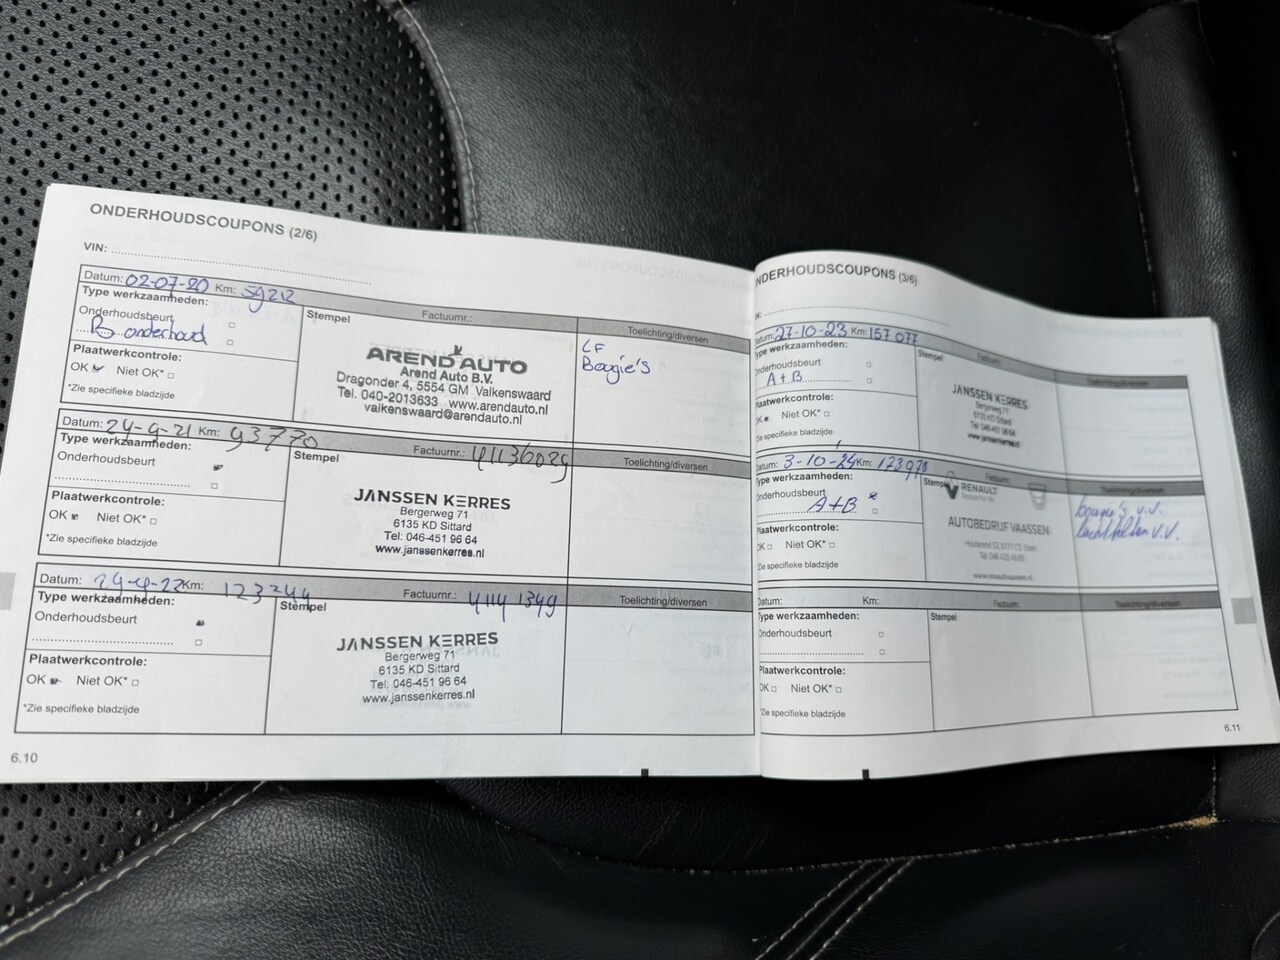 ONDERHOUDSCOUPONS (2/6)
VIN:
Datum: 02-07-20 Km: 59212
Type werkzaamheden:
Onderhoudsbeurt
B onderhoud
Plaatwerkcontrole:
OK Niet OK*
*Zie specifieke bladzijde
Stempel Factuurnr.:
AREND AUTO
Arend Auto B.V.
Dragonder 4, 5554 GM Valkenswaard
Tel. 040-2013633 www.arendauto.nl
valkenswaard@arendauto.nl
Toelichting/diversen
LF
Bougie's
Datum: 24-9-21 Km: 93770
Type werkzaamheden:
Onderhoudsbeurt
Plaatwerkcontrole:
OK Niet OK*
*Zie specifieke bladzijde
Stempel Factuurnr.: 41136029
JANSSEN KERRES
Bergerweg 71
6135 KD Sittard
Tel: 046-451 96 64
www.janssenkerres.nl
Toelichting/diversen
Datum: Km: 123244
Type werkzaamheden:
Onderhoudsbeurt
Plaatwerkcontrole:
OK Niet OK*
*Zie specifieke bladzijde
Stempel Factuurnr.: 41141349
JANSSEN KERRES
Bergerweg 71
6135 KD Sittard
Tel: 046-451 96 64
www.janssenkerres.nl
Toelichting/diversen
6.10
NDERHOUDSCOUPONS (3/6)
Datum: 27-10-23 Km: 157 077
Type werkzaamheden:
Onderhoudsbeurt
A+B
Plaatwerkcontrole:
OK Niet OK*
*Zie specifieke bladzijde
Stempel Factuurnr.:
JANSSEN KERRES
Bergerweg 71
6135 KD Sittard
Tel: 046-451 96 64
www.janssenkerres.nl
Toelichting/diversen
Datum: 3-10-24 Km: 173970
Type werkzaamheden:
Onderhoudsbeurt
A+B
Plaatwerkcontrole:
OK Niet OK*
*Zie specifieke bladzijde
Stempel Factuurnr.:
RENAULT
AUTOBEDRIJF VAASSEN
www.renaultvaassen.nl
Toelichting/diversen
bougie's v.v.
luchtfilter v.v.
Datum: Km:
Type werkzaamheden:
Onderhoudsbeurt
Plaatwerkcontrole:
OK Niet OK*
*Zie specifieke bladzijde
Stempel Factuurnr.:
Toelichting/diversen
6.11